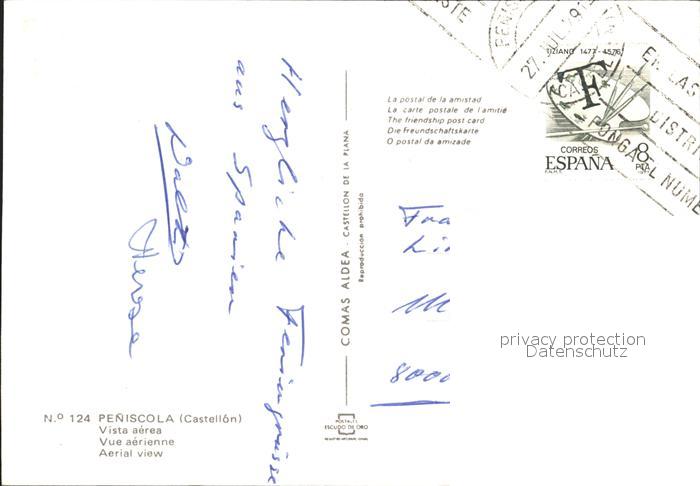 Herzliche Feriengrüsse
aus Spanien
Walter
N.º 124 PEÑISCOLA (Castellón)
Vista aérea
Vue aérienne
Aerial view
COMAS ALDEA - CASTELLON DE LA PLANA
Reproducción prohibida
POSTALES
ESCUDO DE ORO
La postal de la amistad
La carte postale de l'amitié
The friendship post card
Die Freundschaftskarte
O postal da amizade
TIZIANO 1477-1576
CORREOS
8
PTA
ESPAÑA
27. JUL
EN LAS
DISTRI
PONGA EL NUME
Fra
Li
8000
privacy protection
Datenschutz